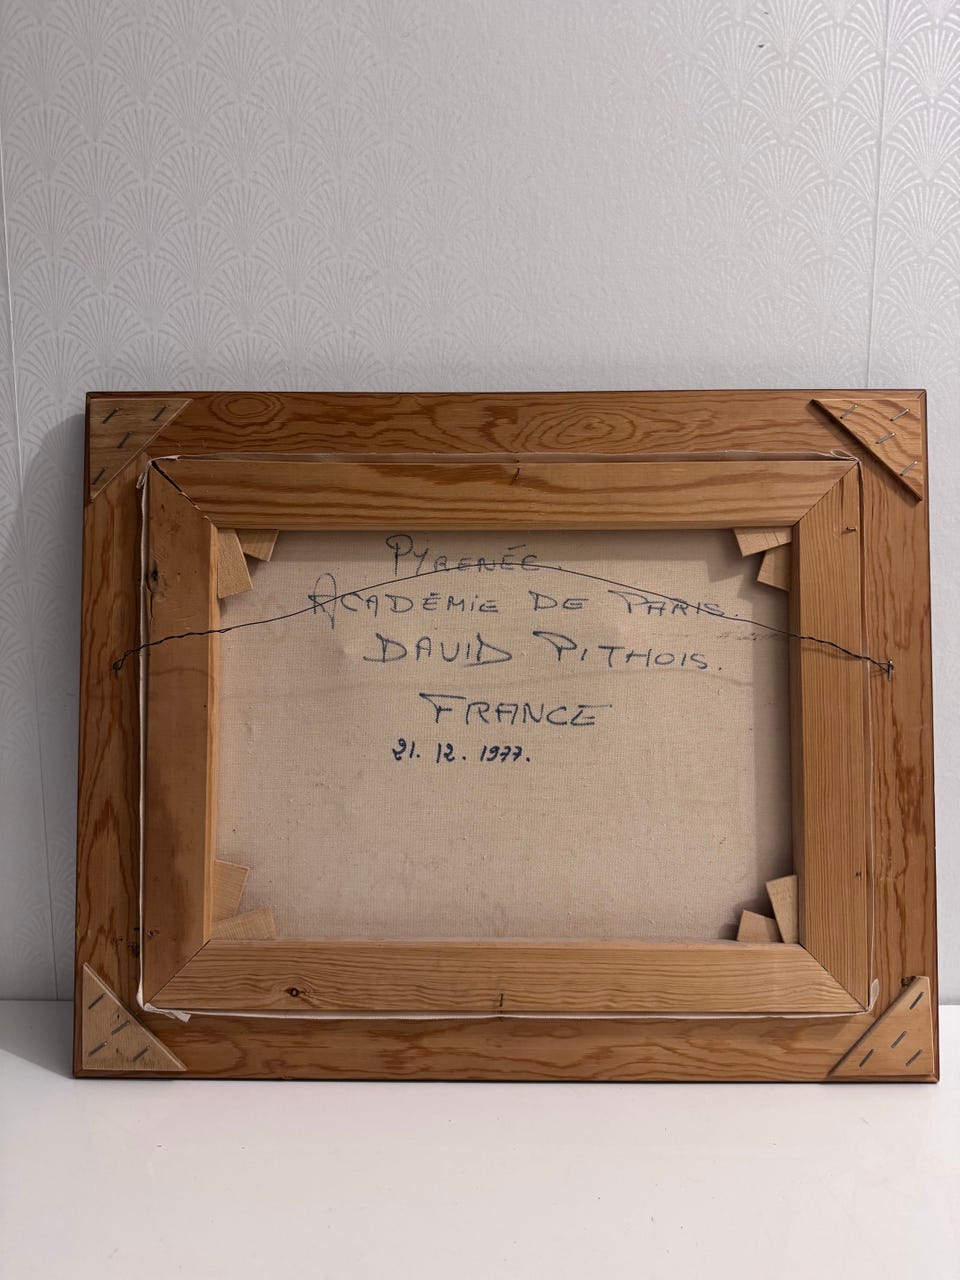 PYRENÉE.
ACADÉMIE DE PARIS.
DAVID PITHOIS.
FRANCE
21. 12. 1977.